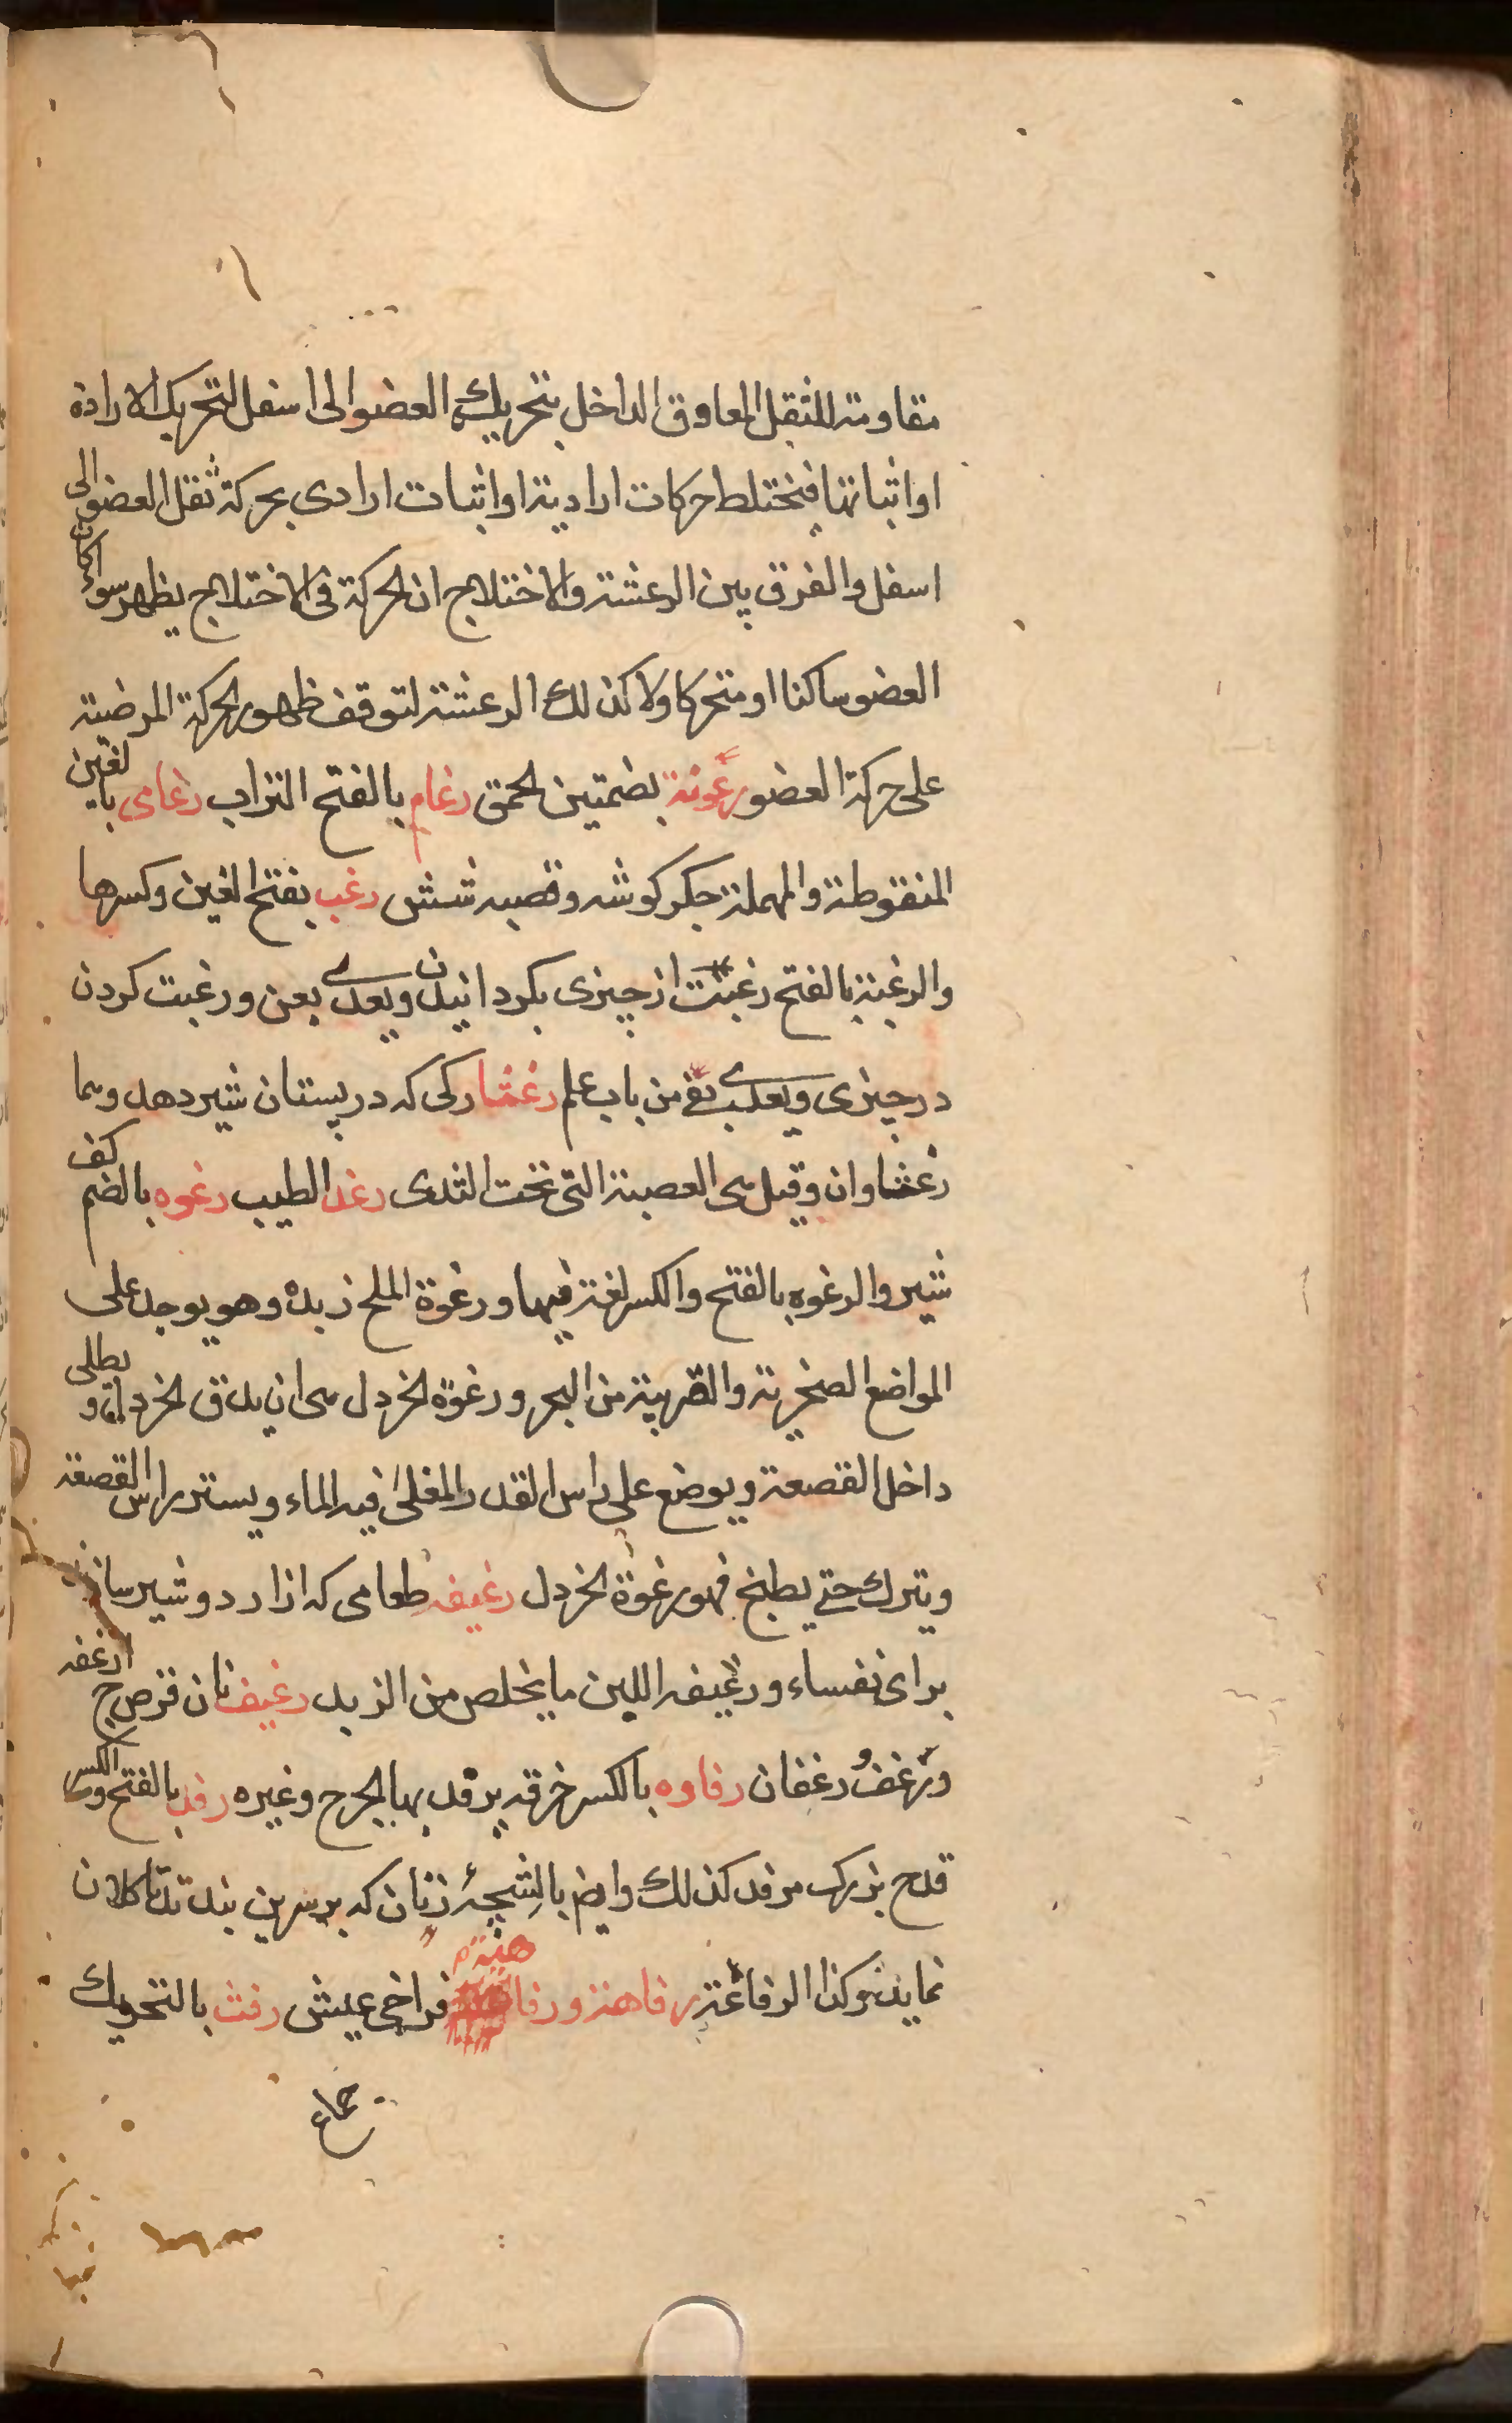 مقاومته للثقل المعاوق الداخل بتحریك العضو الی اسفل لتحریك الارادة
او اثباتها فتختلط حرکات ارادیة او اثبات ارادی بحرکة ثقل العضو الی
اسفل والفرق بین الرعشة والاختلاج ان الحرکة فی الاختلاج یظهر سواء کان
العضو ساکنا او متحرکا ولا کذلك الرعشة لتوقف ظهور الحرکة المرضیة
علی حرکة العضو رعونة بضمتین الحمق رغام بالفتح التراب رغامی بالغین
المنقوطة والمهملة جکر کوشه وقصبه شش رغب بفتح الغین وکسرها
والرغبة بالفتح رغبت از چیزی بکردانیدن ویعدی بعن ورغبت کردن
در چیزی ویعدی بفی من باب علم رغثا رکی که در پستان شیر دهد وهما
رغثاوان وقیل هی العصبة التی تحت الثدی رغد الطیب رغوه بالضم کف
شیر والرغوه بالفتح والکسر لغة فیها ورغوة الملح زبده وهو یوجد علی
المواضع الصخریة والقریبة من البحر ورغوة الخردل هی ان یدق الخردل و یطلی
داخل القصعة ویوضع علی راس القدر المغلی فیه الماء ویستر راس القصعة
ویترك حتی یطبخ فهو رغوة الخردل رغیفه طعامی که از ارد و شیر سازند
برای نفساء ورغیفه اللبن ما یخلص من الزبد رغیف نان قرص ج ارغفه
ورغف و رغفان رفاوه بالکسر خرقه یرفد بها الجرح وغیره رفد بالفتح والکسر
قدح بزرك مرفد کذلك وایض بالشچهٔ زنان که بر سرین بندند تا کلان
نمایند وکذا الرفاعة رفاهة ورفاهیة م فراخی عیش رفث بالتحریك
جماع